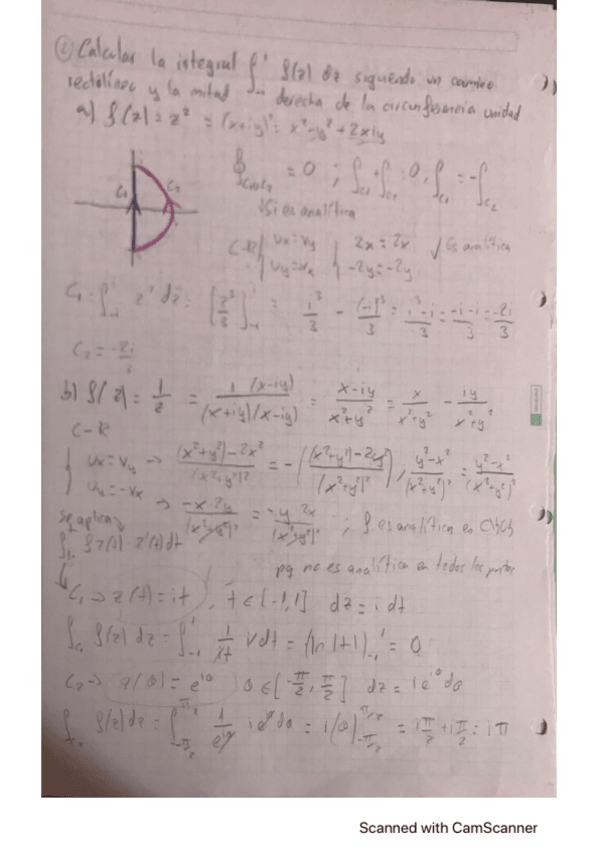 ② Calcular la integral ∫₋ᵢⁱ f(z) dz siguiendo un camino
rectolíneo y la mitad derecha de la circunferencia unidad
a) f(z) = z² = (x+iy)² = x²-y²+2xiy
C₁ C₂
∮ C₁∪C₂ = 0 ; ∫C₁ + ∫C₂ = 0, ∫C₁ = -∫C₂
Si es analítica
C-R { ux = vy { 2x = 2x √ Es analítica
-2y = -2y
C₁ = ∫₋ᵢⁱ z² dz = [z³/3]₋ᵢⁱ = i³/3 - (-i)³/3 = (i³-i)/3 = (-i-i)/3 = -2i/3
C₂ = -2i/3
b) f(z) = 1/z = 1 (x-iy)/(x+iy)(x-iy) = (x-iy)/(x²+y²) = x/(x²+y²) - iy/(x²+y²)
C-R
{ ux = vy → ((x²+y²)-2x²)/(x²+y²)² = -((x²+y²)-2y²)/(x²+y²)², (y²-x²)/(x²+y²)² = (y²-x²)/(x²+y²)²
= -vx → -x 2y/(x²+y²)² = -y 2x/(x²+y²)² ; f es analítica en
se aplica
∫ f z(t) · z'(t) dt
pq no es analítica en todos los puntos
C₁ → z(t) = it, t ∈ [-1,1] dz = i dt
∫C₁ f(z) dz = ∫₋₁¹ 1/it i dt = (ln |t|)₋₁¹ = 0
C₂ → z(θ) = e^iθ θ ∈ [-π/2, π/2] dz = i e^iθ dθ
∫ f(z) dz = ∫-π/2^π/2 1/e^iθ i e^iθ dθ = i(θ)-π/2^π/2 = iπ/2 + iπ/2 = iπ
Scanned with CamScanner